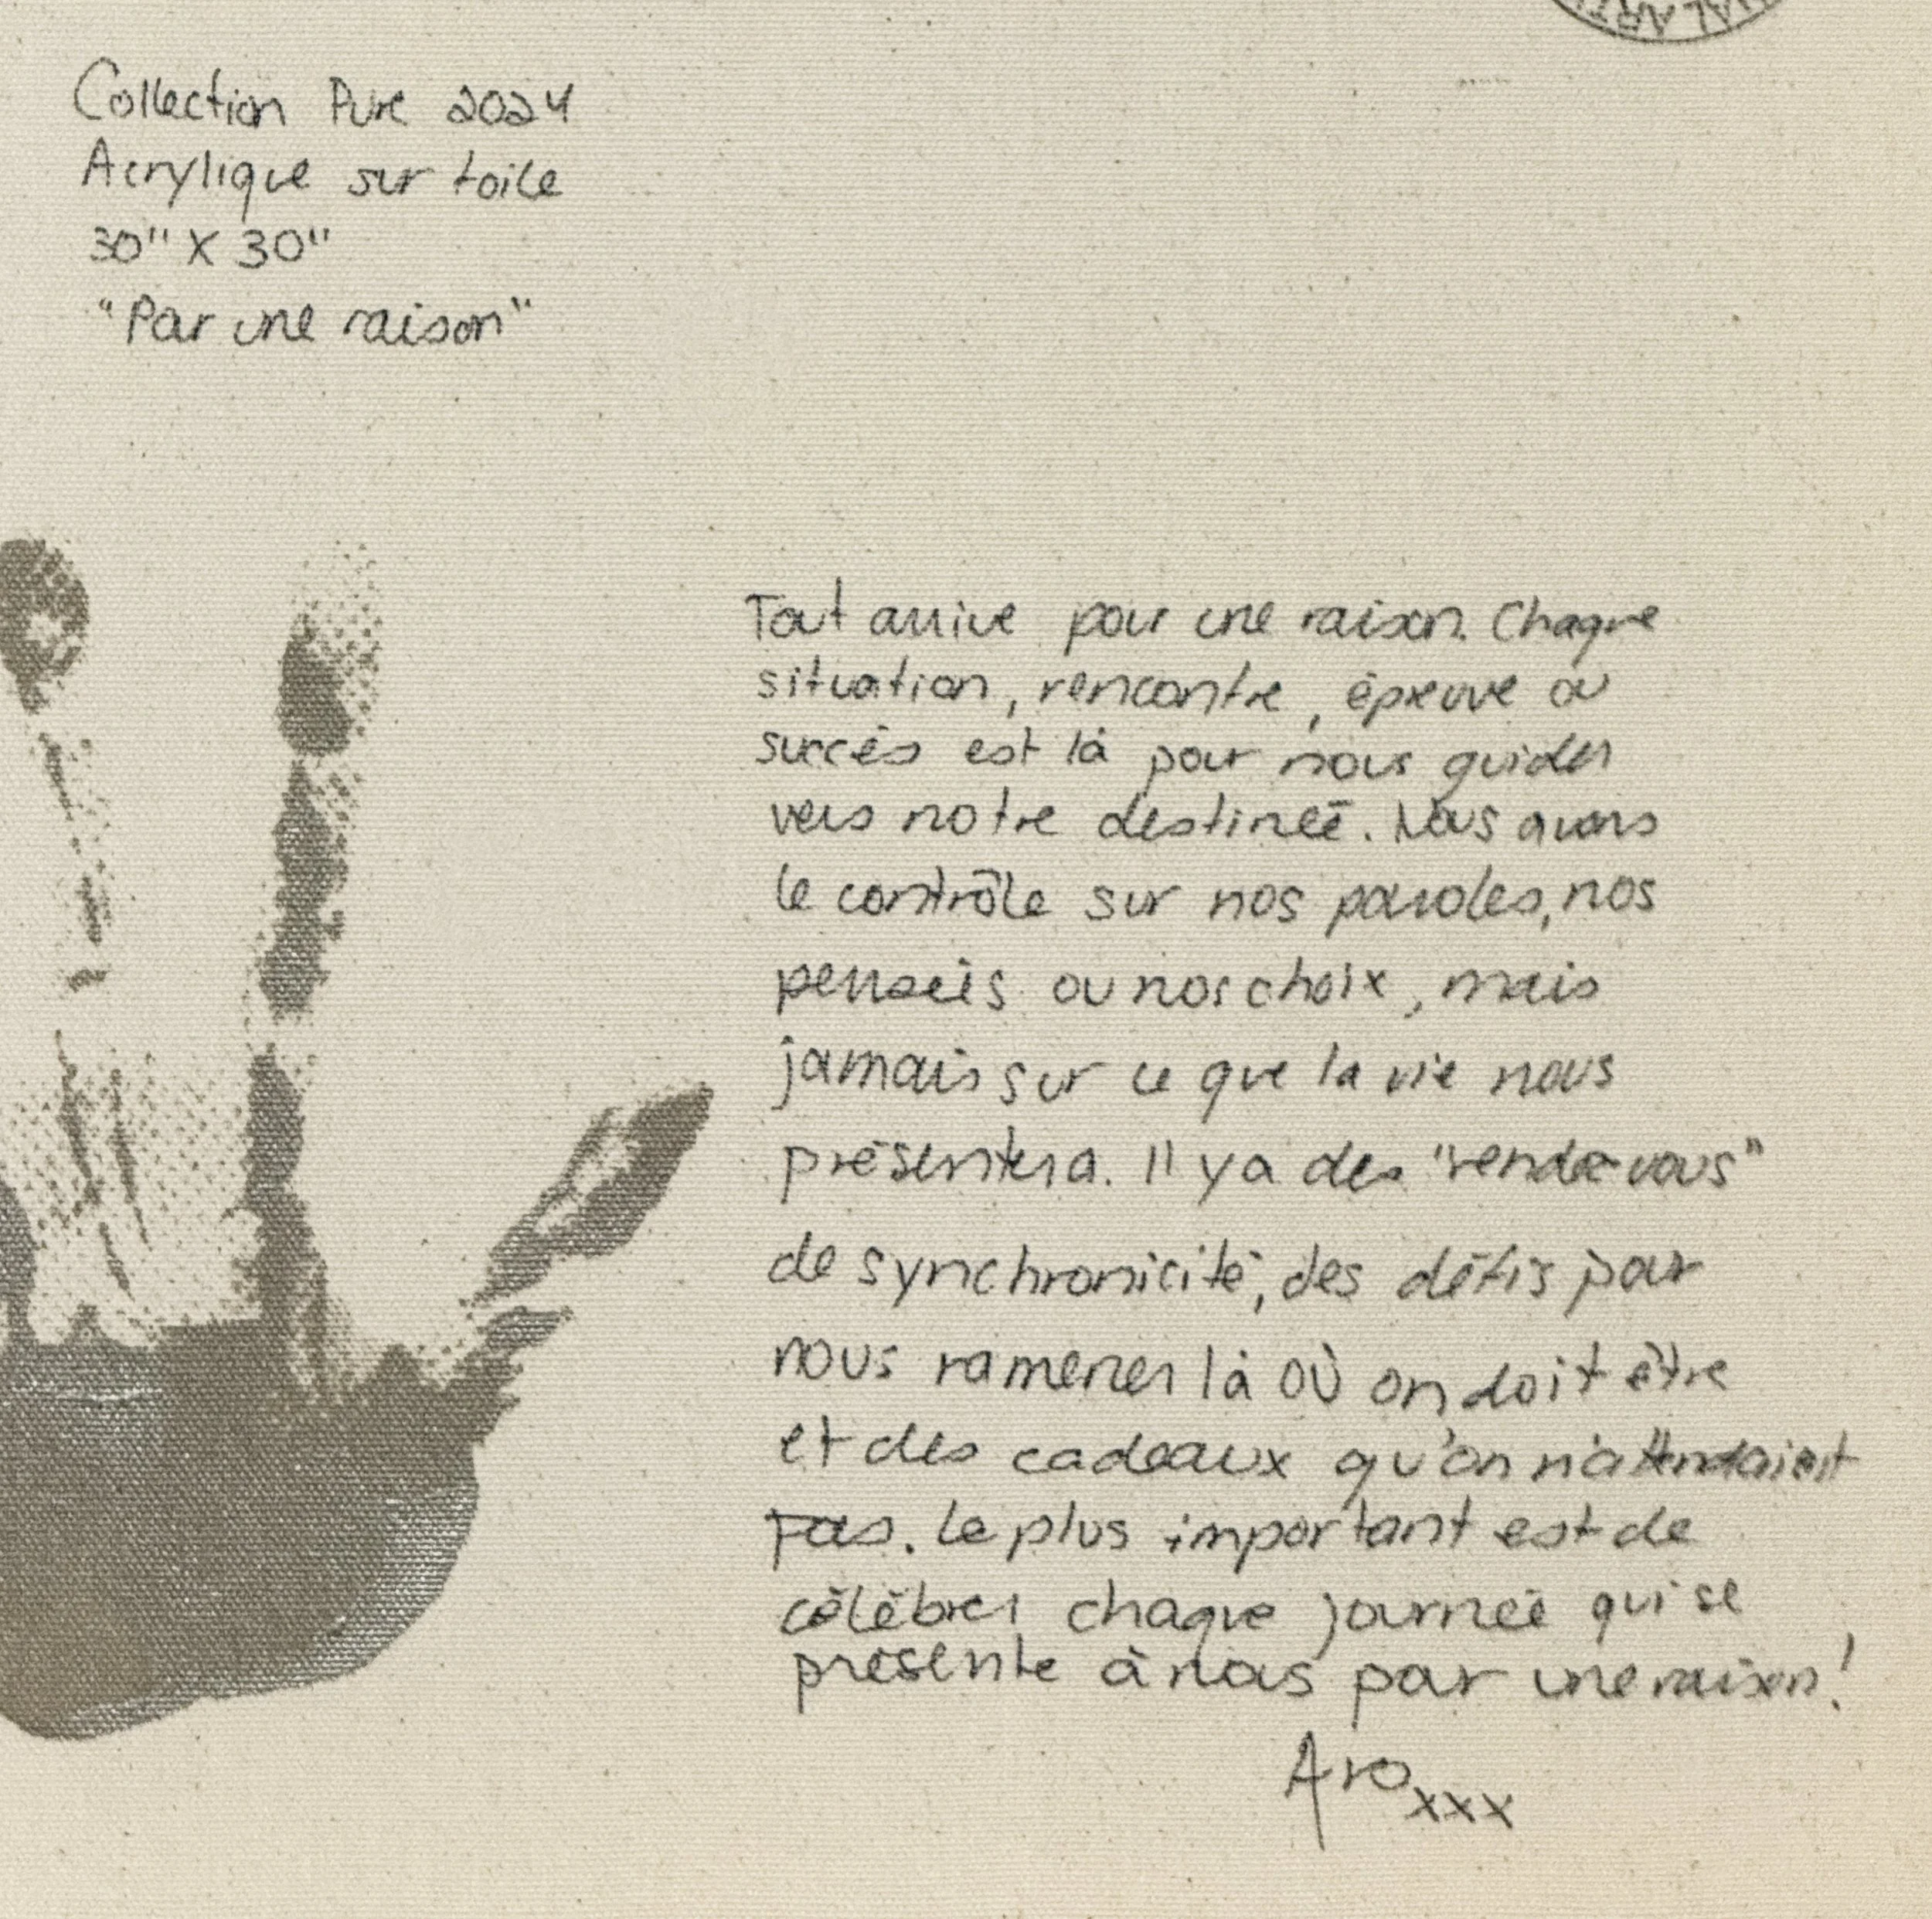 Collection Pure 2024
Acrylique sur toile
30" X 30"
"Par une raison"
Tout arrive pour une raison. Chaque
situation, rencontre, épreuve ou
succès est là pour nous guider
vers notre destinée. Nous avons
le contrôle sur nos paroles, nos
pensées ou nos choix, mais
jamais sur ce que la vie nous
présentera. Il y a des "rendez-vous"
de synchronicité, des défis pour
nous ramener là où on doit être
et des cadeaux qu'on n'attendaient
pas. Le plus important est de
célébrer chaque journée qui se
présente à nous par une raison!
Aro xxx